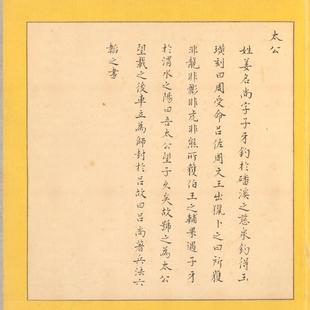 太公
姓姜名尚字子牙釣於磻溪之慈泉釣得玉
璜刻曰周受命呂佐周文王出獵卜之曰所獲
非龍非彲非虎非熊所獲伯王之輔果遇子牙
於渭水之陽曰吾太公望子久矣故號之為太公
望載之後車立為師封於呂故曰呂尚著兵法六
韜之書